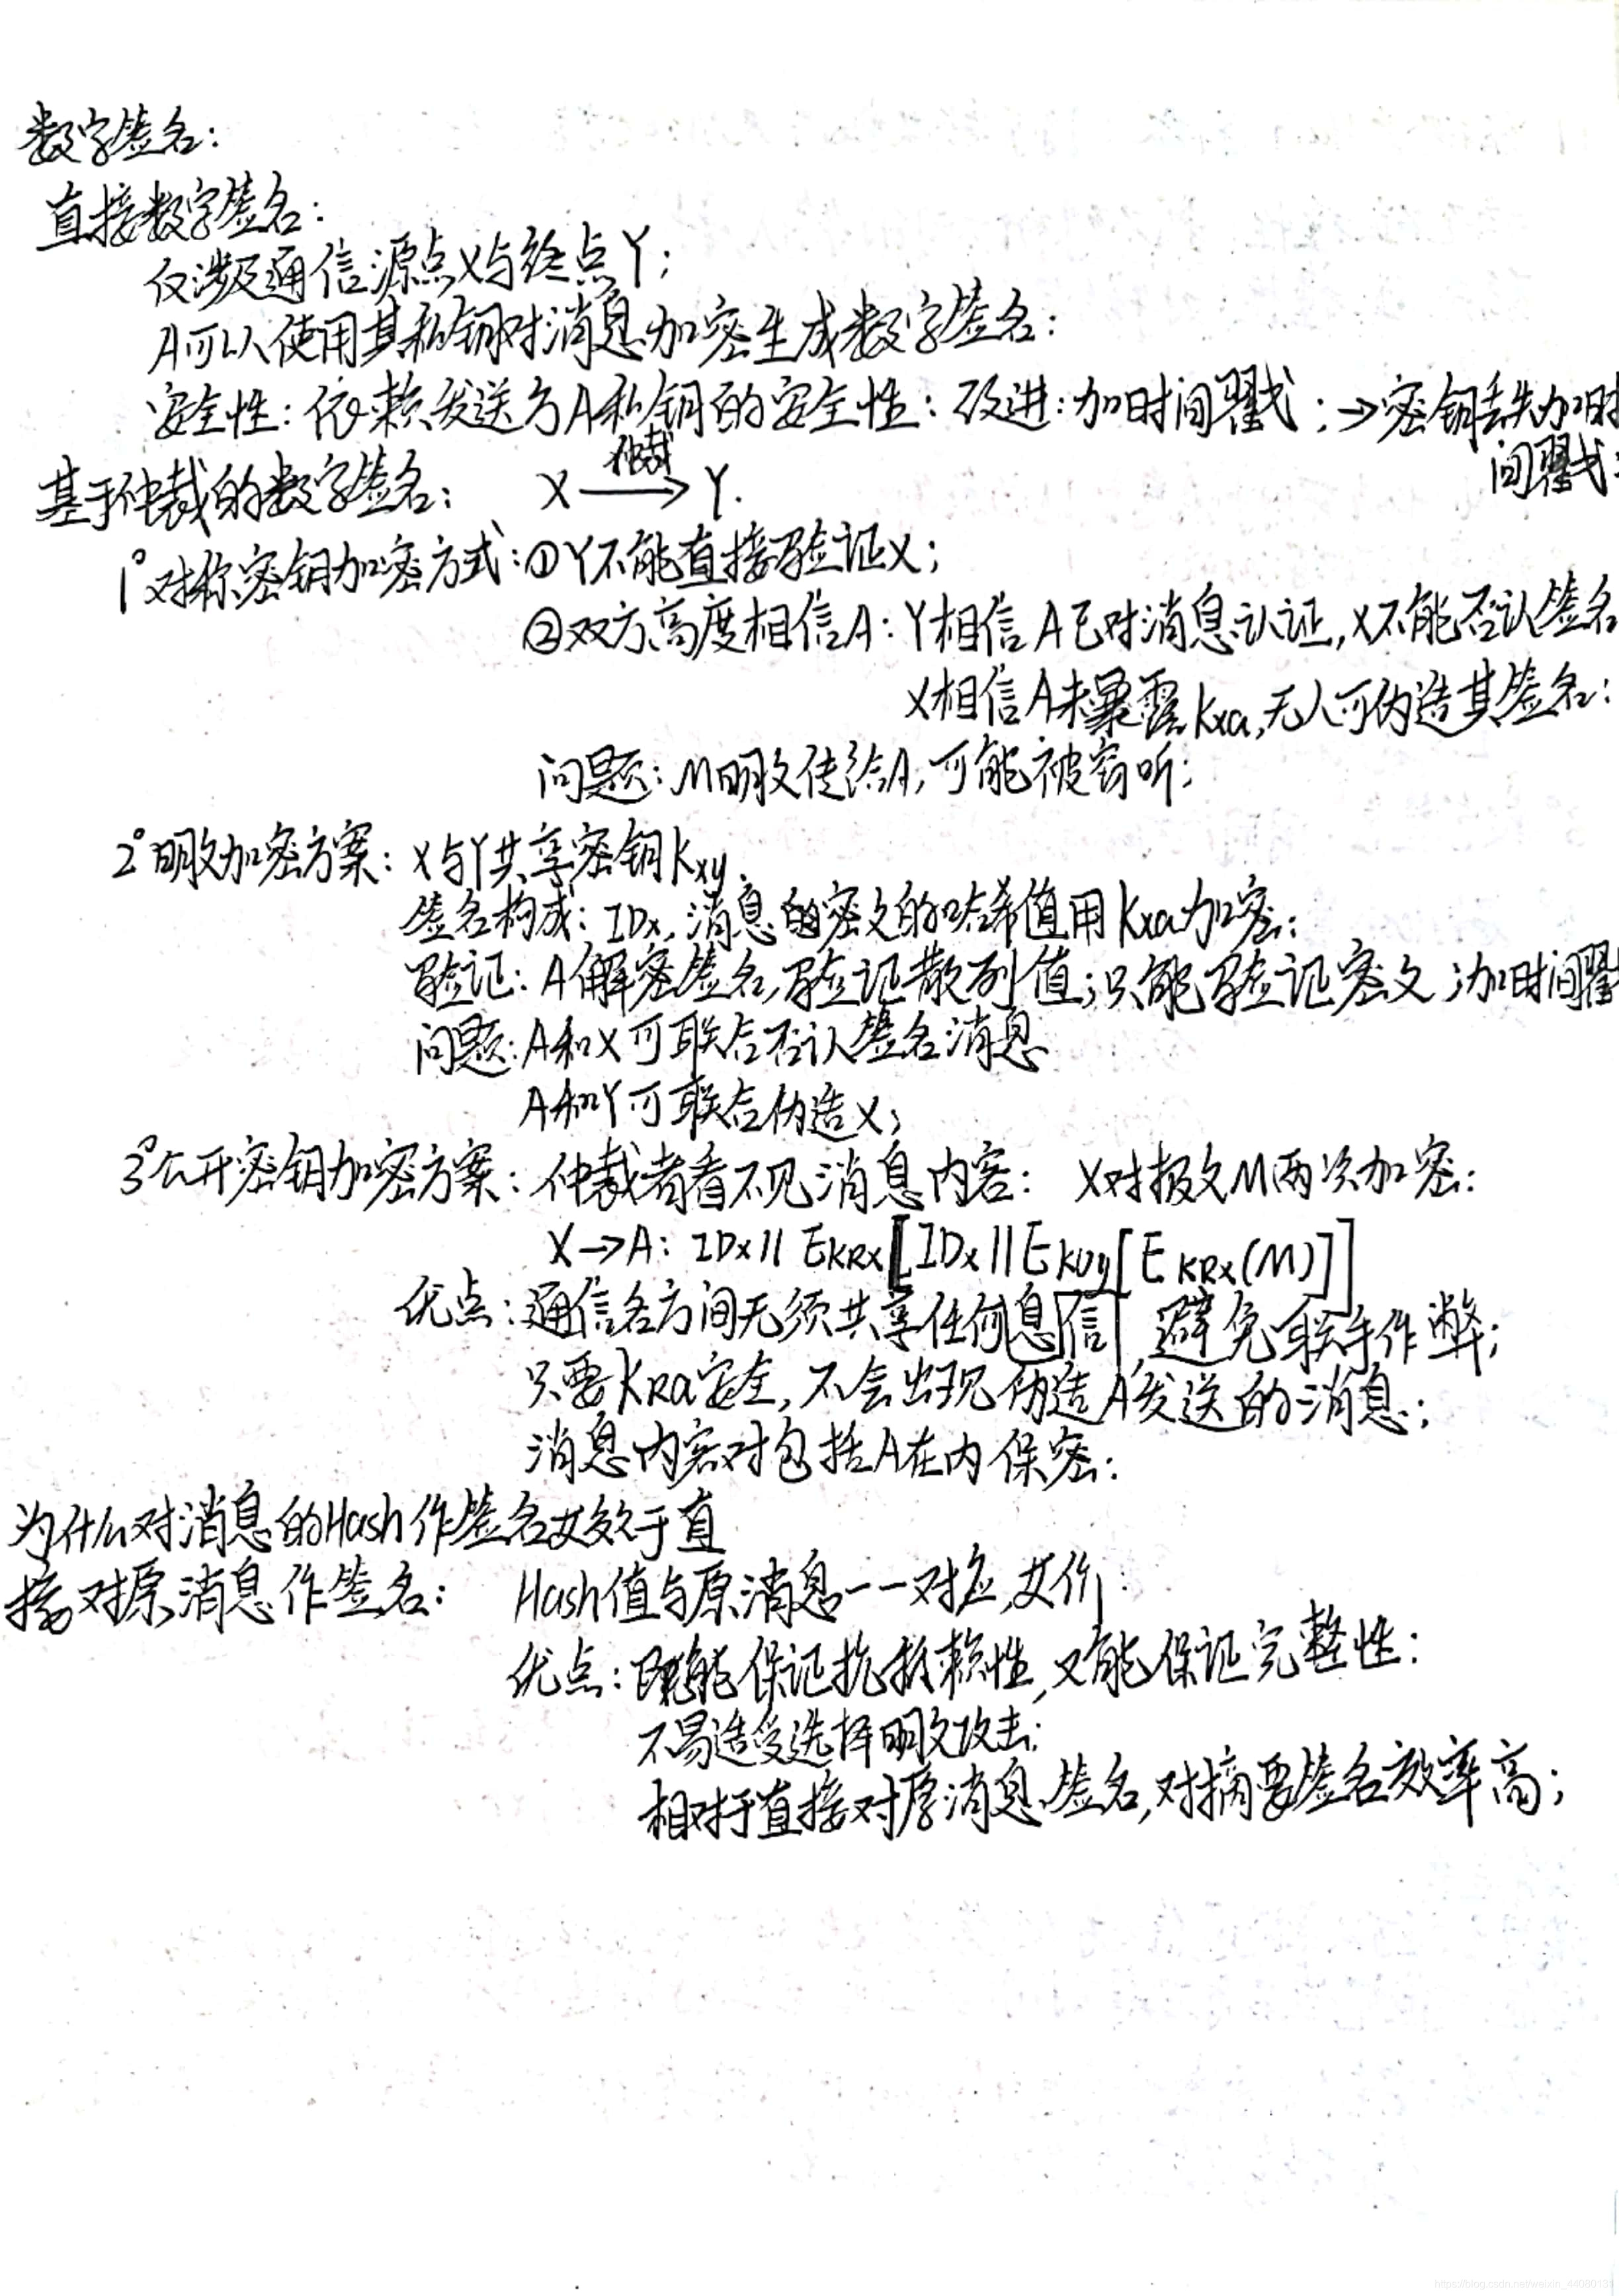 数字签名：
直接数字签名：
仅涉及通信源点X与终点Y；
A可以使用其私钥对消息加密生成数字签名：
安全性：依赖发送方A私钥的安全性：改进：加时间戳；→密钥丢失加时
间戳：
基于仲裁的数字签名：  X 仲裁→ Y.
1°对称密钥加密方式：①Y不能直接验证X；
②双方高度相信A：Y相信A已对消息认证，X不能否认签名
X相信A未暴露Kxa，无人可伪造其签名：
问题：M明文传给A，可能被窃听；
2°明文加密方案：X与Y共享密钥Kxy.
签名构成：IDx，消息的密文的哈希值用Kxa加密；
验证：A解密签名，验证散列值；只能验证密文；加时间戳
问题：A和X可联合否认签名消息
A和Y可联合伪造X；
3°公开密钥加密方案：仲裁者看不见消息内容：X对报文M两次加密：
X→A：IDx||EKRx[IDx||EKUy[EKRx(M)]]
优点：通信各方间无须共享任何息信，避免联手作弊；
只要KRa安全，不会出现伪造A发送的消息；
消息内容对包括A在内保密：
为什么对消息的Hash作签名等效于直
接对原消息作签名：  Hash值与原消息一一对应，等价：
优点：既能保证抗抵赖性，又能保证完整性：
不易遭受选择明文攻击；
相对于直接对原消息签名，对摘要签名效率高；